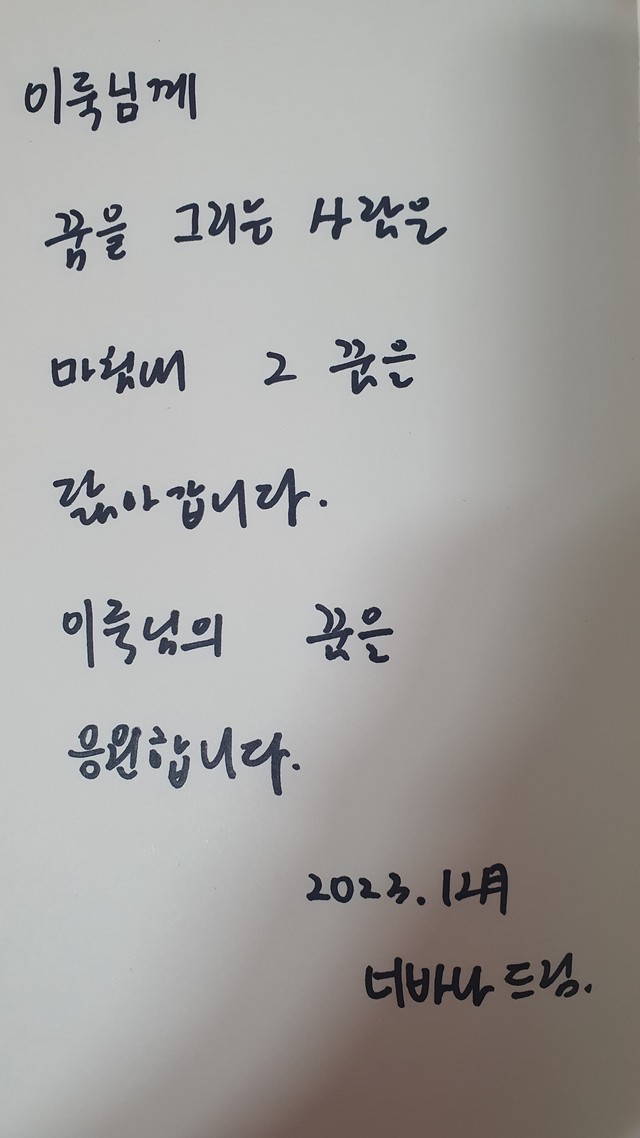 이룩님께
꿈을 그리는 사람은
마침내 그 꿈을
닮아갑니다.
이룩님의 꿈을
응원합니다.
2023. 12月
너바나 드림.